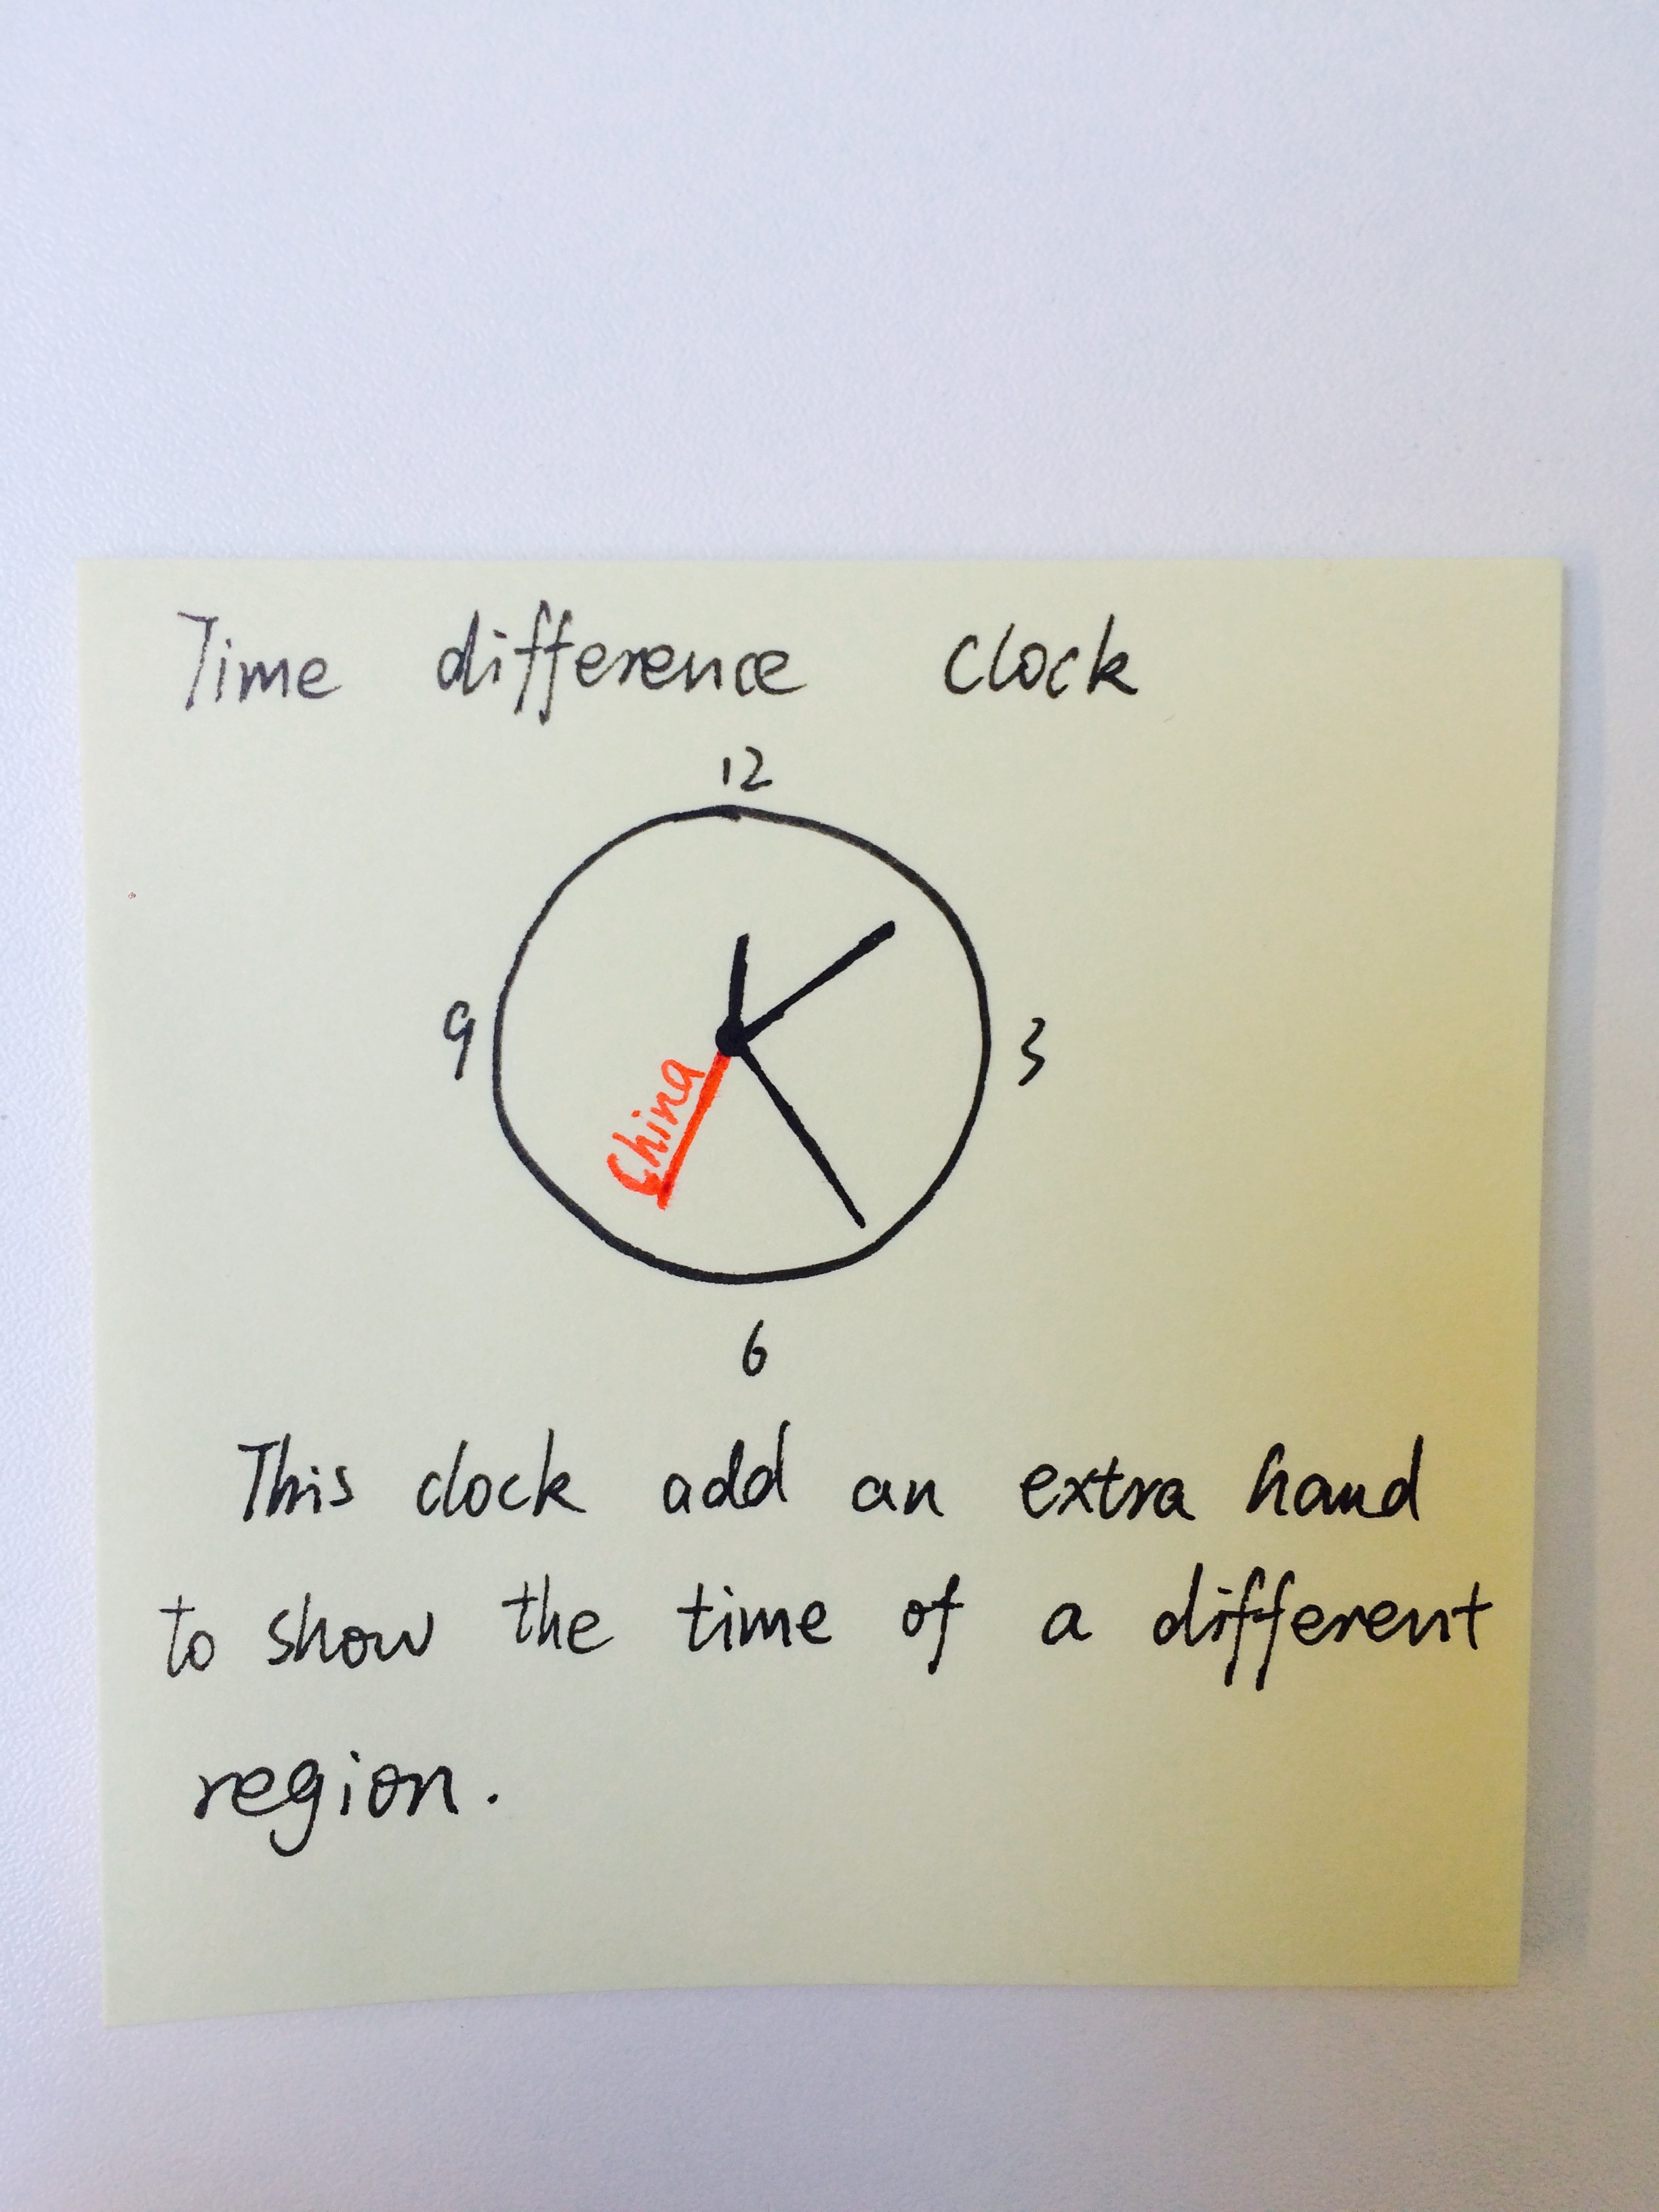 Time difference clock
12
9
3
China
6
This clock add an extra hand
to show the time of a different
region.